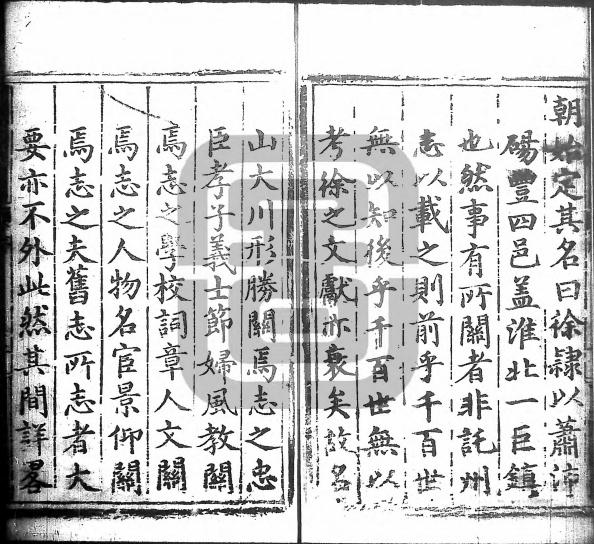 朝始定其名曰徐隸以蕭沛
碭豐四邑盖淮北一巨鎮
也然事有所關者非託州
志以載之則前乎千百世
無以知後乎千百世無以
考徐之文獻亦衰矣故名
山大川形勝關焉志之忠
臣孝子義士節婦風教關
焉志之學校詞章人文關
焉志之人物名宦景仰關
焉志之夫舊志所志者大
要亦不外此然其間詳畧